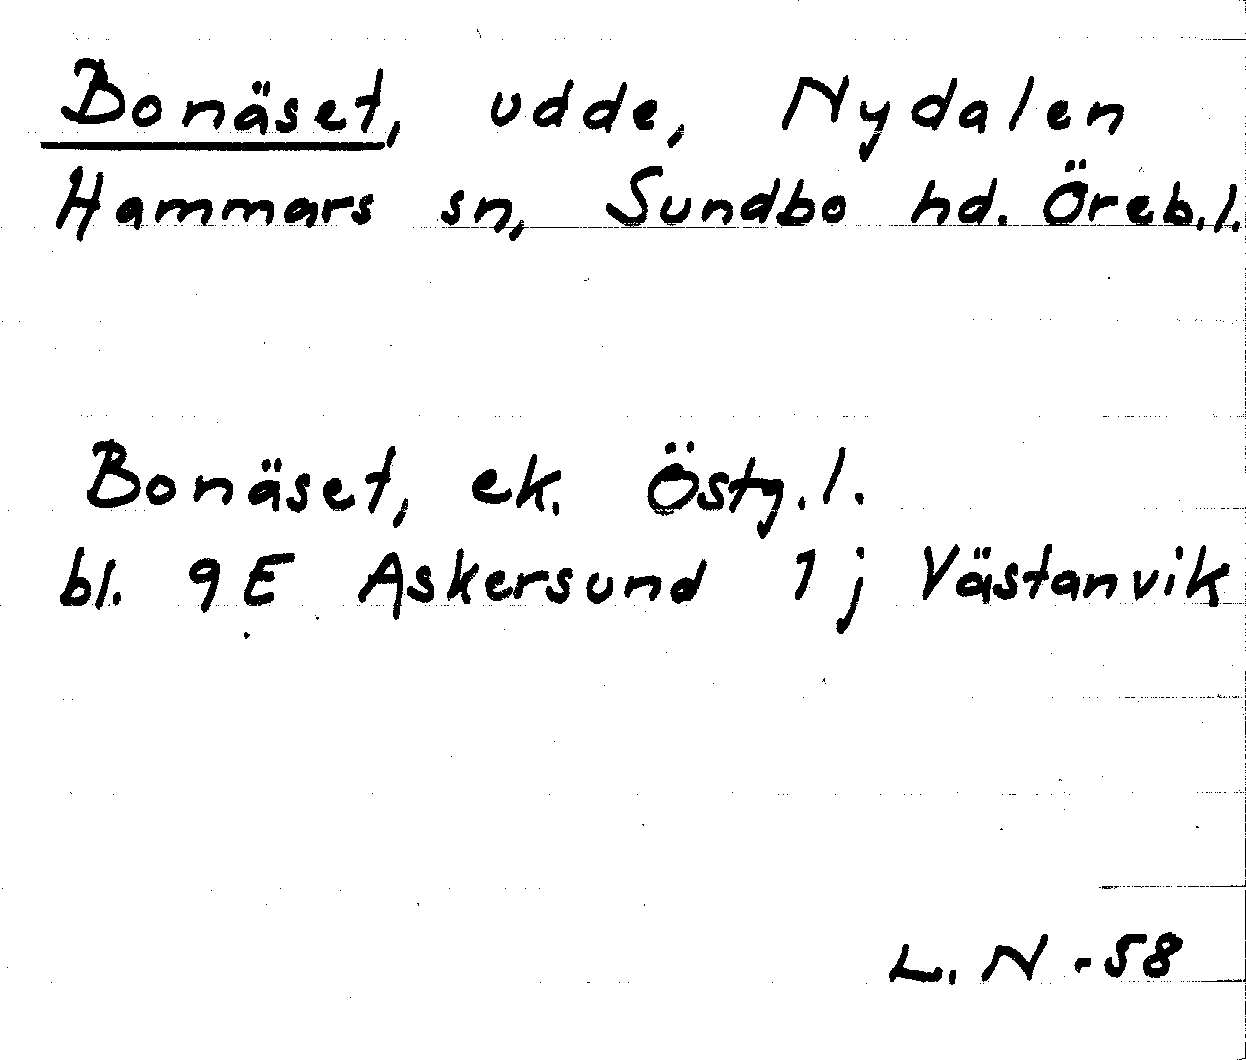 Bonäset, udde, Nydalen
Hammars sn, Sundbo hd. Öreb.l.
Bonäset, ek. Östg.l.
bl. 9E Askersund 1j Västanvik
L. N -58